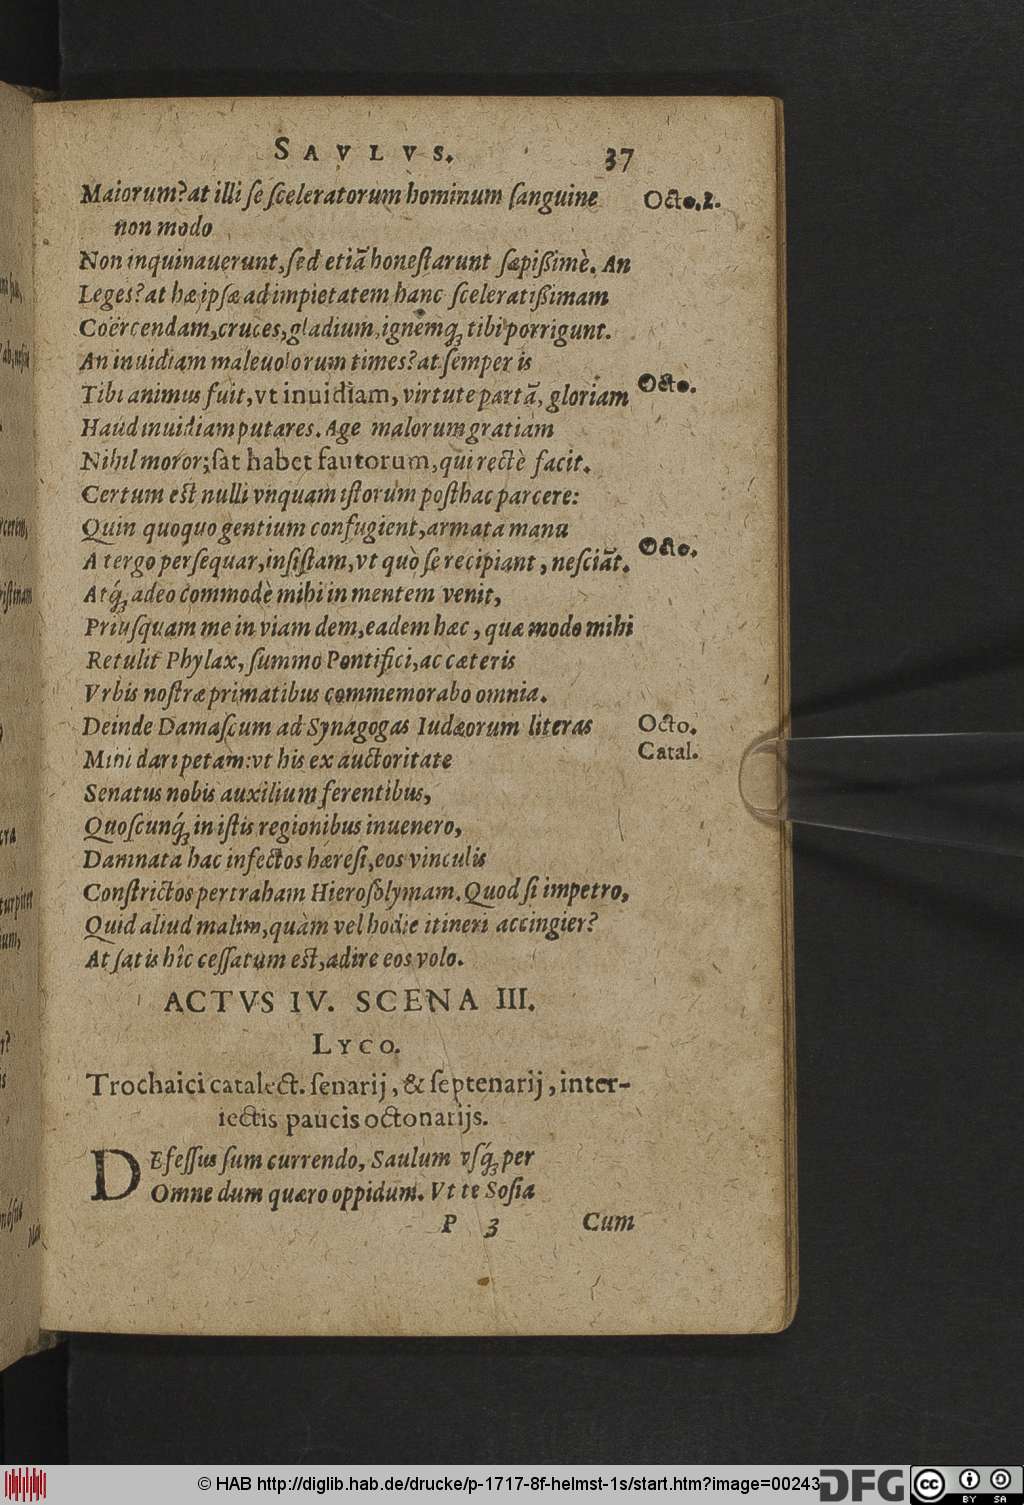 SAVLVS. 37
Maiorum? at illi se sceleratorum hominum sanguine Octo.2.
non modo
Non inquinauerunt, sed etiã honestarunt sæpißimè. An
Leges? at hæ ipsæ ad impietatem hanc sceleratißimam
Coërcendam, cruces, gladium, ignemq́; tibi porrigunt.
An inuidiam maleuolorum times? at semper is
Tibi animus fuit, vt inuidiam, virtute partã, gloriam Octo.
Haud inuidiam putares. Age malorum gratiam
Nihil moror; sat habet fautorum, qui rectè facit.
Certum est nulli vnquam istorum posthac parcere:
Quin quoquo gentium confugient, armata manu
A tergo persequar, insistam, vt quò se recipiant, nesciãt. Octo.
Atq́; adeo commodè mihi in mentem venit,
Priusquam me in viam dem, eadem hæc, quæ modo mihi
Retulit Phylax, summo Pontifici, ac cæteris
Vrbis nostræ primatibus commemorabo omnia.
Deinde Damascum ad Synagogas Iudæorum literas Octo.
Mihi dari petam: vt his ex auctoritate Catal.
Senatus nobis auxilium ferentibus,
Quoscunq́; in istis regionibus inuenero,
Damnata hac infectos hæresi, eos vinculis
Constrictos pertraham Hierosolymam. Quod si impetro,
Quid aliud malim, quàm vel hodie itineri accingier?
At satis hîc cessatum est, adire eos volo.
ACTVS IV. SCENA III.
LYCO.
Trochaici catalect. senarij, & septenarij, inter-
iectis paucis octonarijs.
DEfessus sum currendo, Saulum vsq́; per
Omne dum quæro oppidum. Vt te Sosia
P 3 Cum
© HAB http://diglib.hab.de/drucke/p-1717-8f-helmst-1s/start.htm?image=00243
DFG
cc BY SA